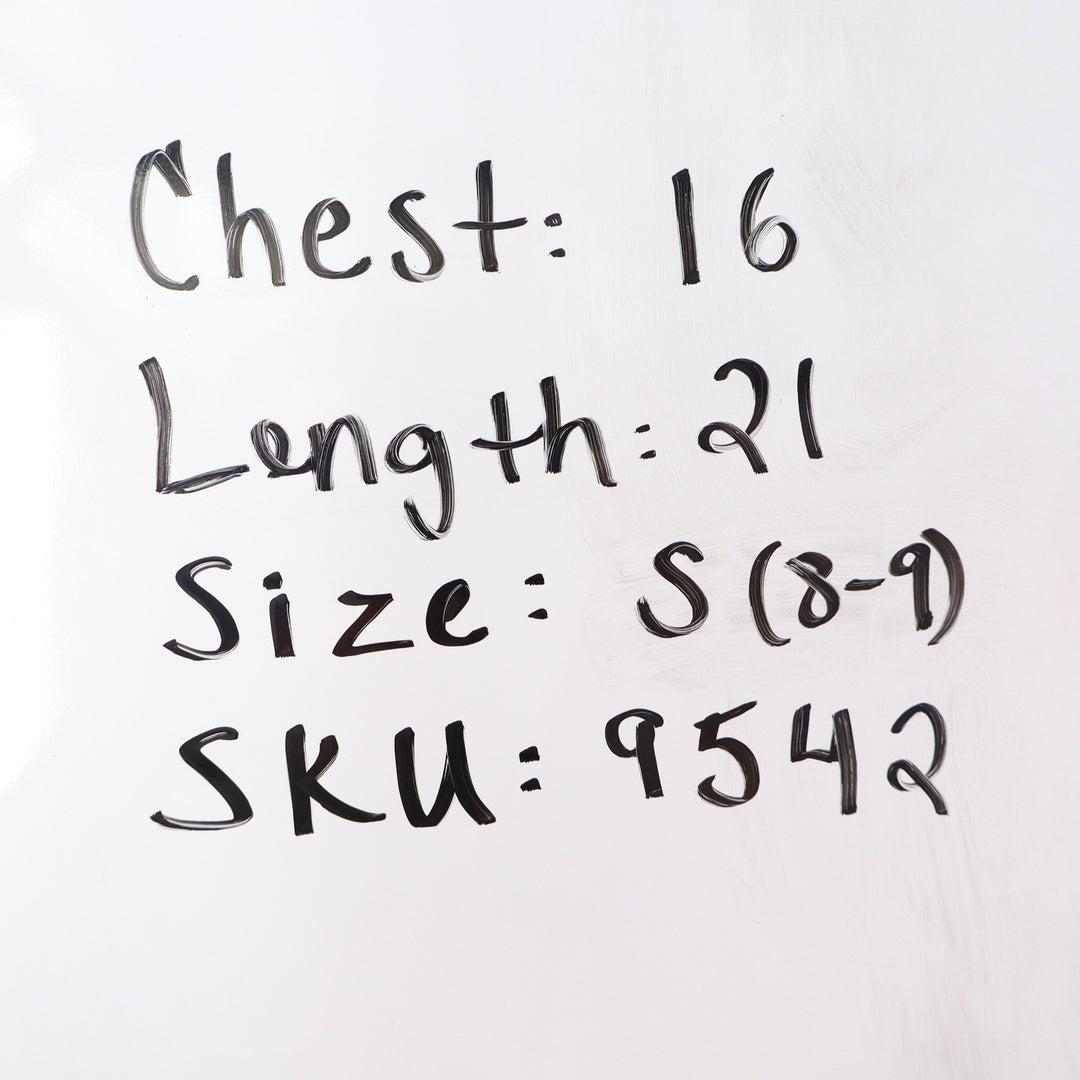 Chest: 16
Length: 21
Size: S (8-9)
SKU: 9542